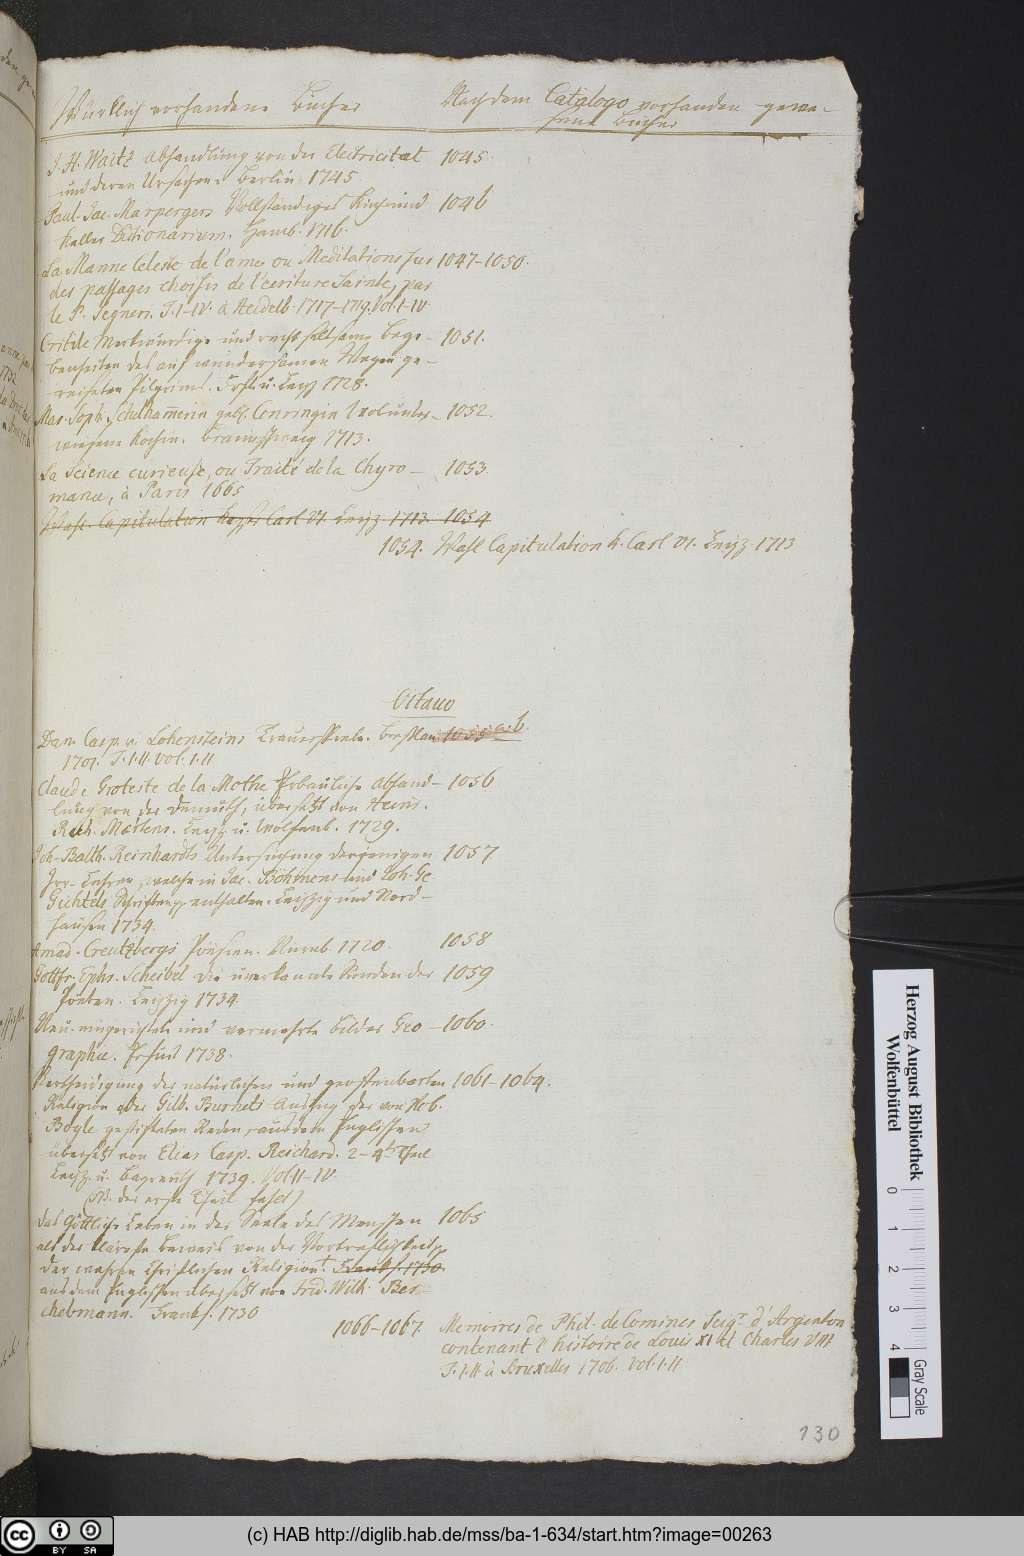 Würklich vorhandene Bücher
Nach dem Catalogo vorhanden gewe-
sene Bücher
J. H. Waitz Abhandlung von der Electricitæt 1045.
und deren Ursachen. Berlin. 1745.
Paul. Jac. Marpergers Vollständiges Küch und 1046
Keller Dictionarium. Hamb. 1716.
La Manne Celeste de l'ame ou Meditations sur 1047-1050.
des passages choisis de l'ecriture Sainte, par
le P. Segneri. T. I-IV. à Heidelb. 1717-1719. Vol. I-IV
Critile Merkwürdige und recht seltsame Bege- 1051.
benheiten des auf wundersamen Wegen ge-
reiseten Pilgrims. Frf. u. Leipz 1728.
Mar. Soph. Schelhammerin geb. Conringin 1052.
Köchin. Braunschweig 1713.
La Science curieuse, ou Traité de la Chyro- 1053.
mance, à Paris 1665
Wahl-Capitulation Kayser Carl VI Leipz. 1713. 1054
1054. Wahl Capitulation K. Carl VI. Leipz. 1713
Octavo
Dan. Casp. v. Lohensteins Trauerspiele. Breslau 1055 a. b.
1701. T. I. II. Vol. I. II
Claude Groteste de la Mothe Erbauliche Abhand- 1056
lung von der Demuth, übersetzt von Henr.
Rich. Märtens. Leipz. u. Wolfenb. 1729.
Joh. Balth. Reinhards Untersuchung derjenigen 1057
Irr-Lehren, welche in Jac. Böhmens und Joh. Ge.
Gichtels Schriften enthalten. Leipzig und Nord-
hausen 1734.
Amad. Creutzbergs Poësien. Nürnb. 1720. 1058
Gottfr. Ephr. Scheibel die unerkannte Sünden der 1059
Poëten. Leipzig 1734.
Neu-eingerichtete und vermehrte Bilder Geo- 1060.
graphie. Erfurt 1738.
Vertheidigung der natürlichen und geoffenbarten 1061-1064.
Religion oder Gilb. Burnets Auszug der von Rob.
Boyle gestifteten Reden, aus dem Englischen
übersetzt von Elias Casp. Reichard. 2-4te Theil
Leipz. u. Bayreuth 1739. Vol. II-IV
(NB. der erste Theil fehlt)
Das Göttliche Leben in der Seele des Menschen 1065
als der kläreste Beweis von der Vortreflichkeit
der wahren Christlichen Religion. Frankf. 1730.
aus dem Englischen übersetzt von Frid. Wilh. Ber-
chelmann. Frankf. 1730
1066-1067. Memoires de Phil. de Comines Seigr. d'Argenton
contenant l'histoire de Louis XI et Charles VIII
T. I. II à Bruxelles 1706. Vol. I. II
130
Herzog August Bibliothek
Wolfenbüttel
0 1 2 3 4
Gray Scale
cc BY SA
(c) HAB http://diglib.hab.de/mss/ba-1-634/start.htm?image=00263